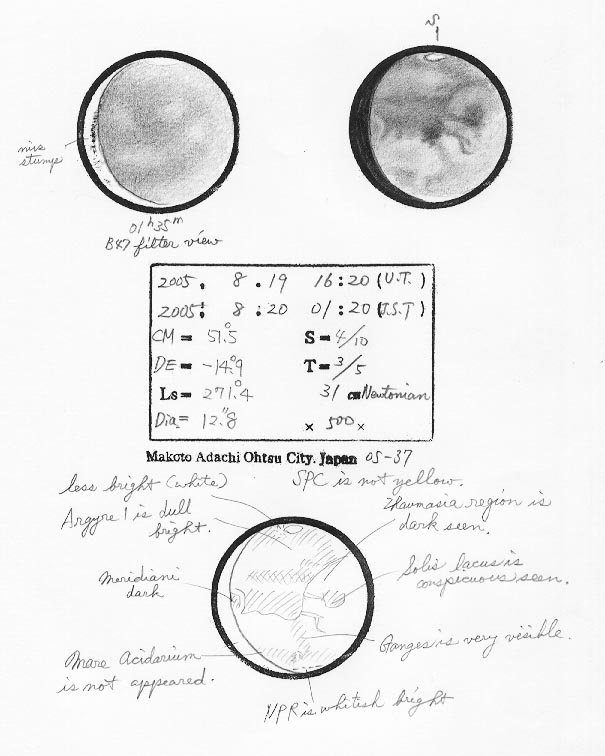 S
mis
stumps
01h35m
B47 filter view
2005. 8.19 16:20 (U.T.)
2005: 8:20 01:20 (J.S.T)
CM = 51.°5 S = 4/10
DE = -14.°9 T = 3/5
Ls = 271.°4 31 cm Newtonian
Dia = 12."8 × 500 ×
Makoto Adachi Ohtsu City. Japan 05-37
less bright (white)
SPC is not yellow.
Argyre I is dull
bright.
Thaumasia region is
dark seen.
Meridiani
dark
Solis lacus is
conspicuous seen.
Ganges is very visible.
Mare Acidarium
is not appeared.
NPR is whitish bright